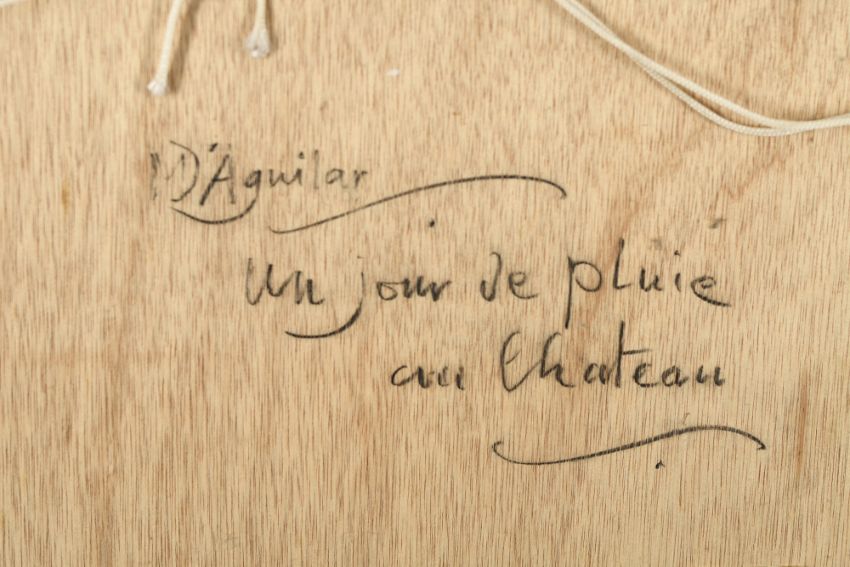 M D'Aguilar
Un jour de pluie
au Chateau